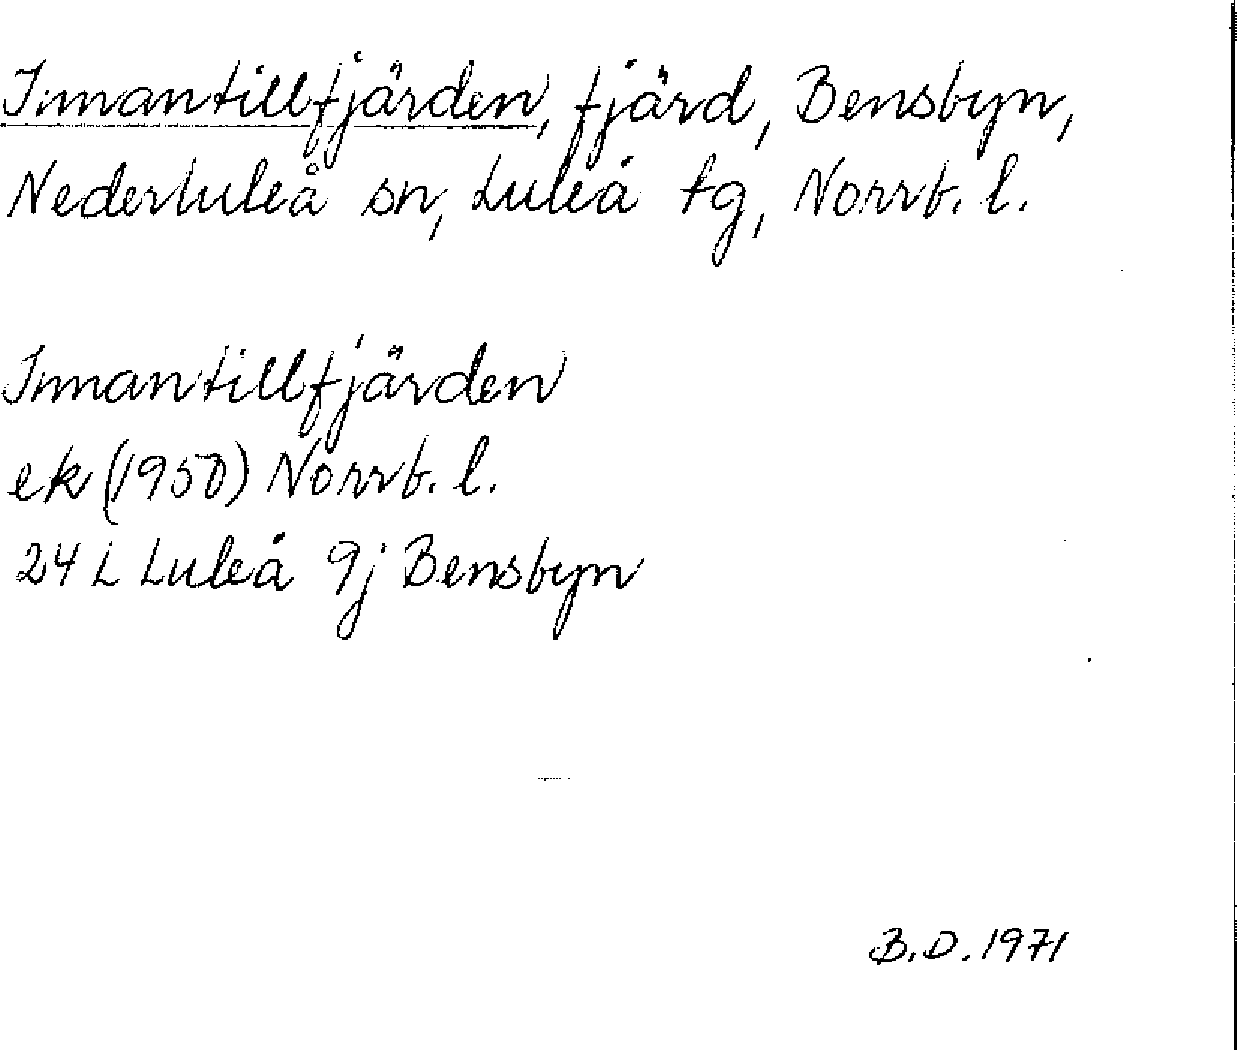 Innantillfjärden, fjärd, Bensbyn,
Nederluleå sn, Luleå tg, Norrb. l.
Innantillfjärden
ek (1950) Norrb. l.
24 L Luleå 9j Bensbyn
B.D. 1971